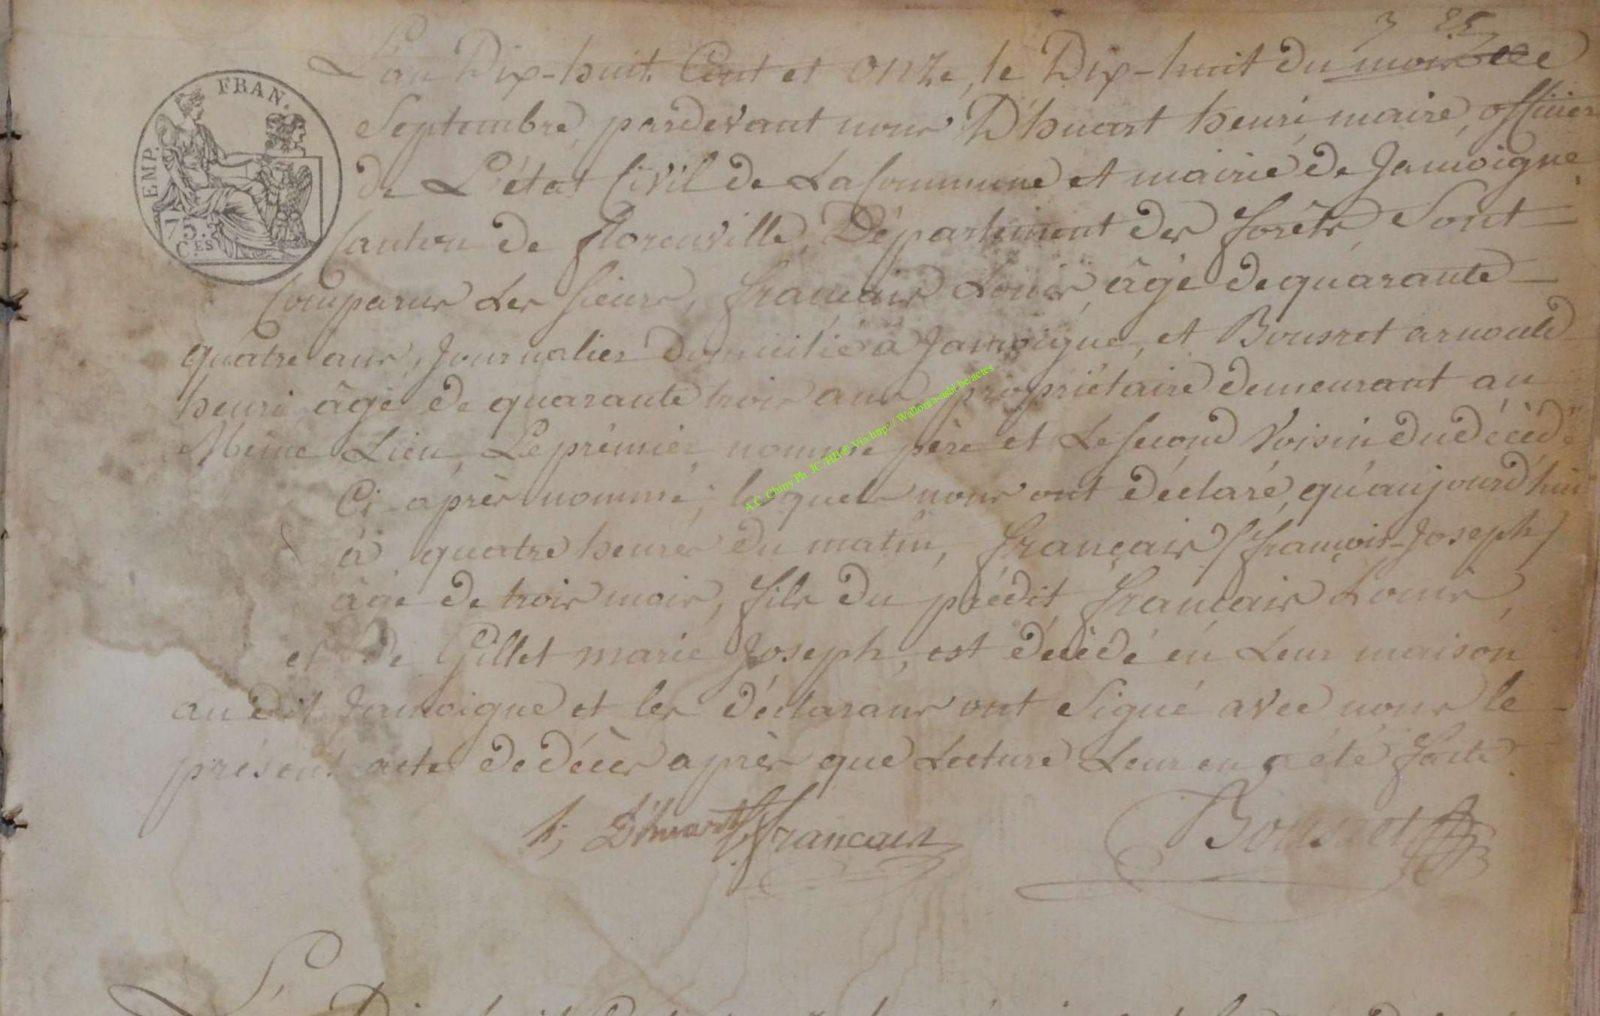 L'an Dix-huit Cent et onze, le Dix-huit du mois de
Septembre, pardevant nous D'huart henri, maire, officier
de L'état Civil de La Commune et mairie de Jamoigne
Canton de florenville, Département des forêts, Sont
Comparus Les sieurs, français Louis, âgé de quarante
quatre ans, Journalier domicilié à Jamoigne, et Bousret arnould
henri âgé de quarante trois ans, propriétaire demeurant au
Même Lieu, Le prémier nommé père et Le second Voisin du décédé
Ci-après nommé; lesquels nous ont déclaré, qu'aujourd'hui
à quatre heures du matin, français (françois-Joseph)
âgé de trois mois, fils du prédit français Louis,
et de Gillet marie Joseph, est décédé en Leur maison
au dit Jamoigne et les déclarans ont Signé avec nous le
présent acte de décès après que Lecture Leur en a été faite.
h; D'huart français Bousret
EMP. FRAN.
75.
C.ES
A.C. Chiny Ph. JC HB® Via http://Wallonia-asbl.be/actes